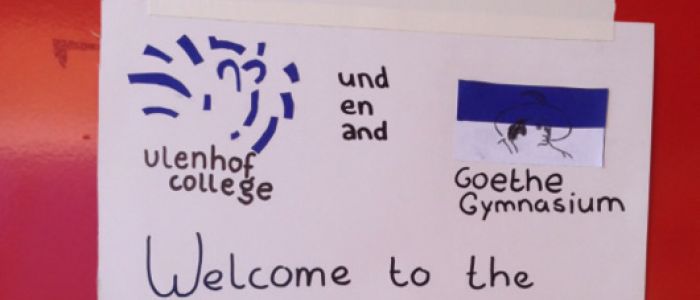 ulenhof
college
und
en
and
Goethe
Gymnasium
Welcome to the